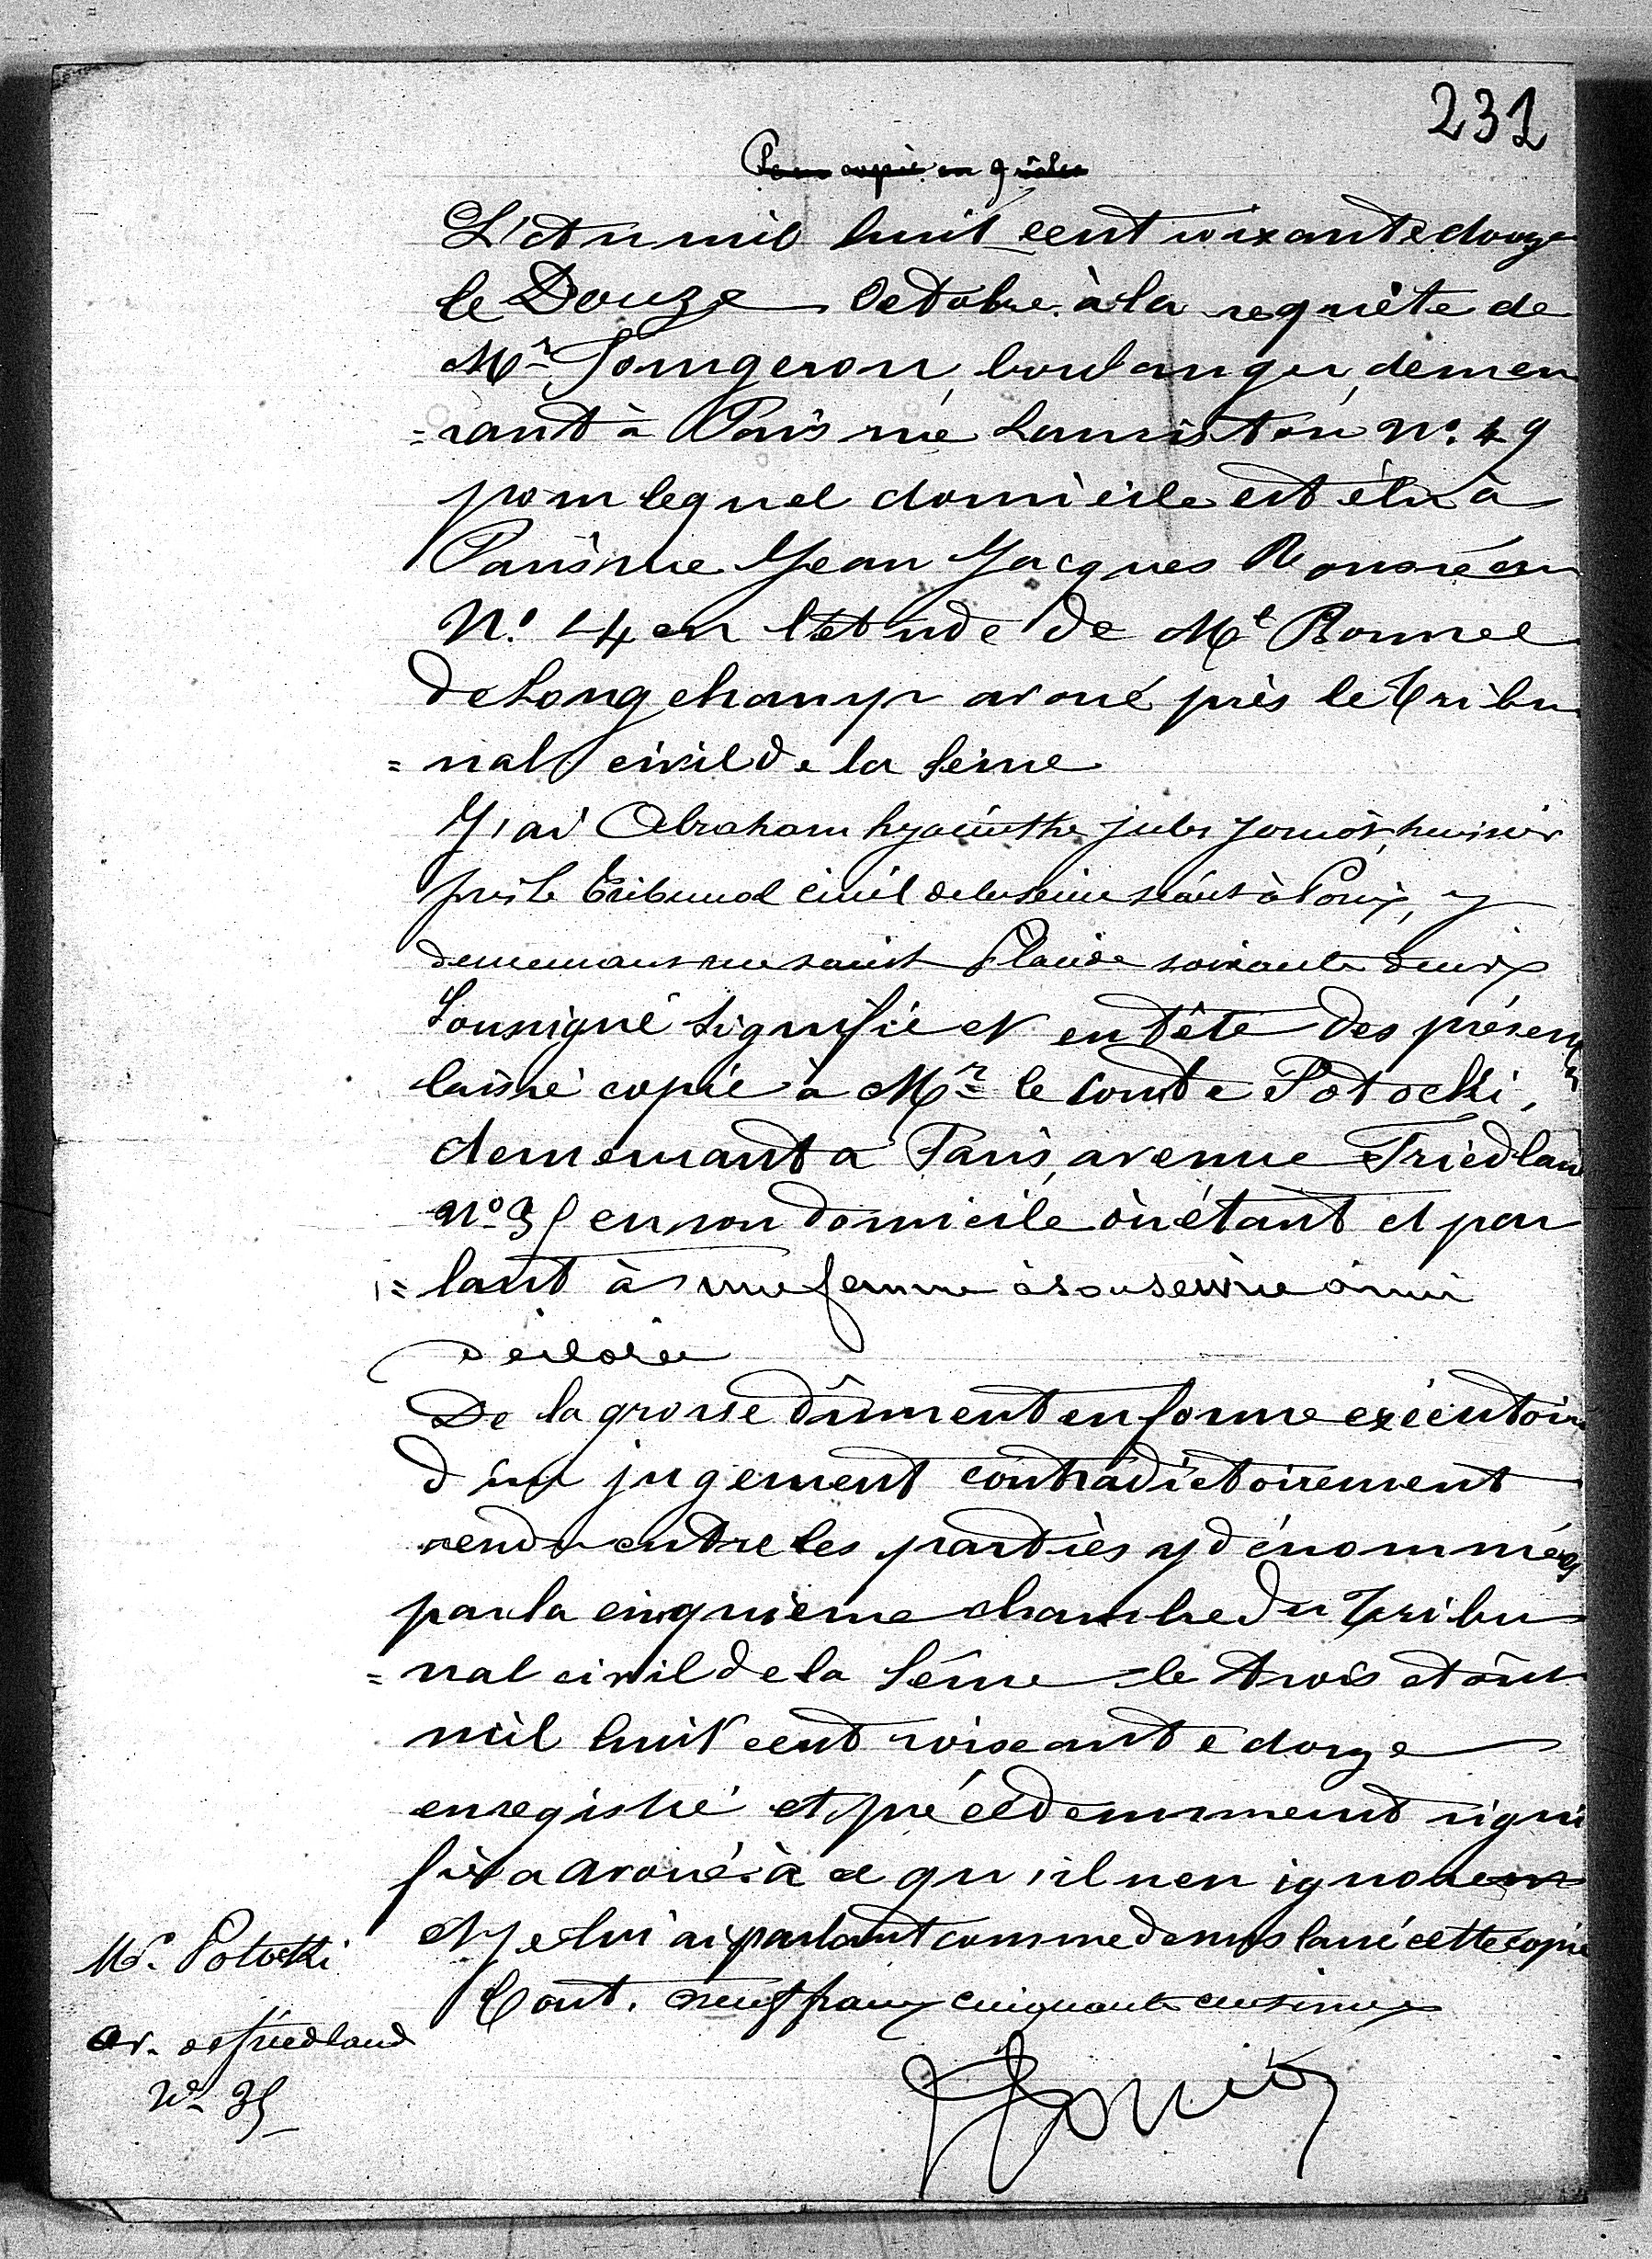 231
Pour copie en 9 rôles
L'An mil huit cent soixante douze
le Douze Octobre à la requête de
Mr Fougeron, boulanger, demeu
=rant à Paris rue Lauriston No. 49
pour lequel domicile est élu à
Paris rue Jean Jacques Rousseau
No. 14 en l'étude de Me Bonnel
de Longchamp avoué près le Tribu
=nal civil de la Seine
J'ai Abraham hyacinthe jules huissier
près le Tribunal civil de la seine séant à Paris, y
demeurant rue saint Placide soixante deux
Soussigné signifié et en tête des présentes
laissé copie à Mr le Comte Potocki,
demeurant à Paris, avenue Friedland
No 35 en son domicile où étant et par
=lant à une femme à son service ainsi
déclarée
De la grosse dûment en forme exécutoire
d'un jugement contradictoirement
rendu entre les parties y dénommées
par la cinquième chambre du Tribu
=nal civil de la Seine le trois Août
mil huit cent soixante douze
enregistré et précédemment signi
fié à avoué à ce qu'il n'en ignore
et je lui ai parlant comme dessus laissé cette copie
Cout. neuf francs cinquante centimes
Mr. Potocki
av. de friedland
No 35